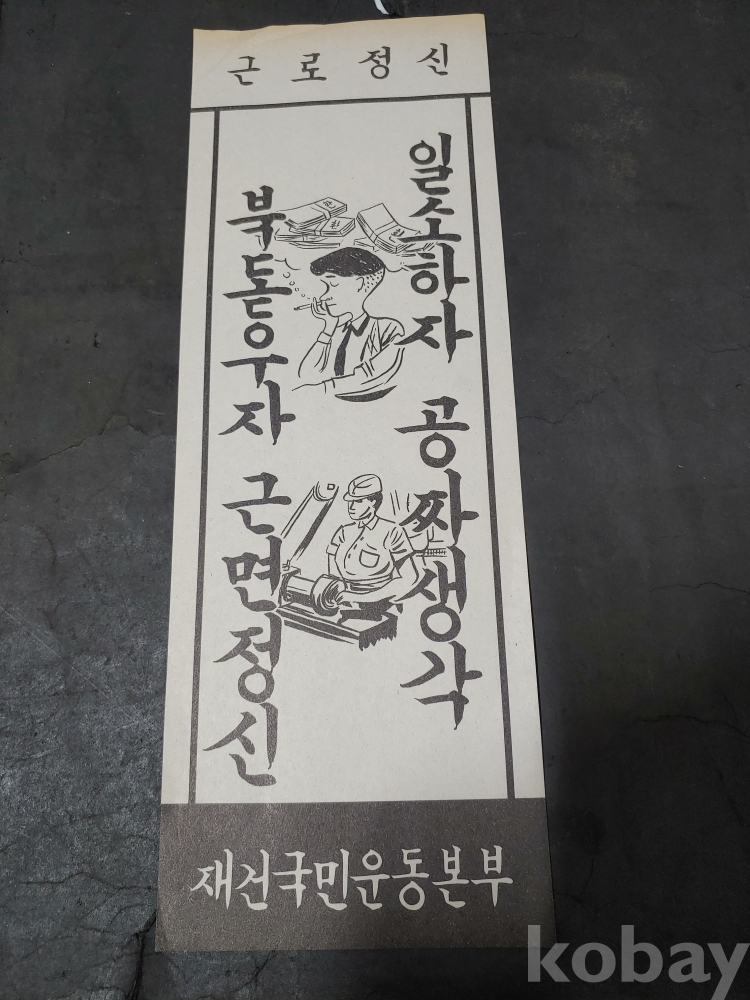 근로정신
일소하자 공짜생각
북돋우자 근면정신
재건국민운동본부
kobay